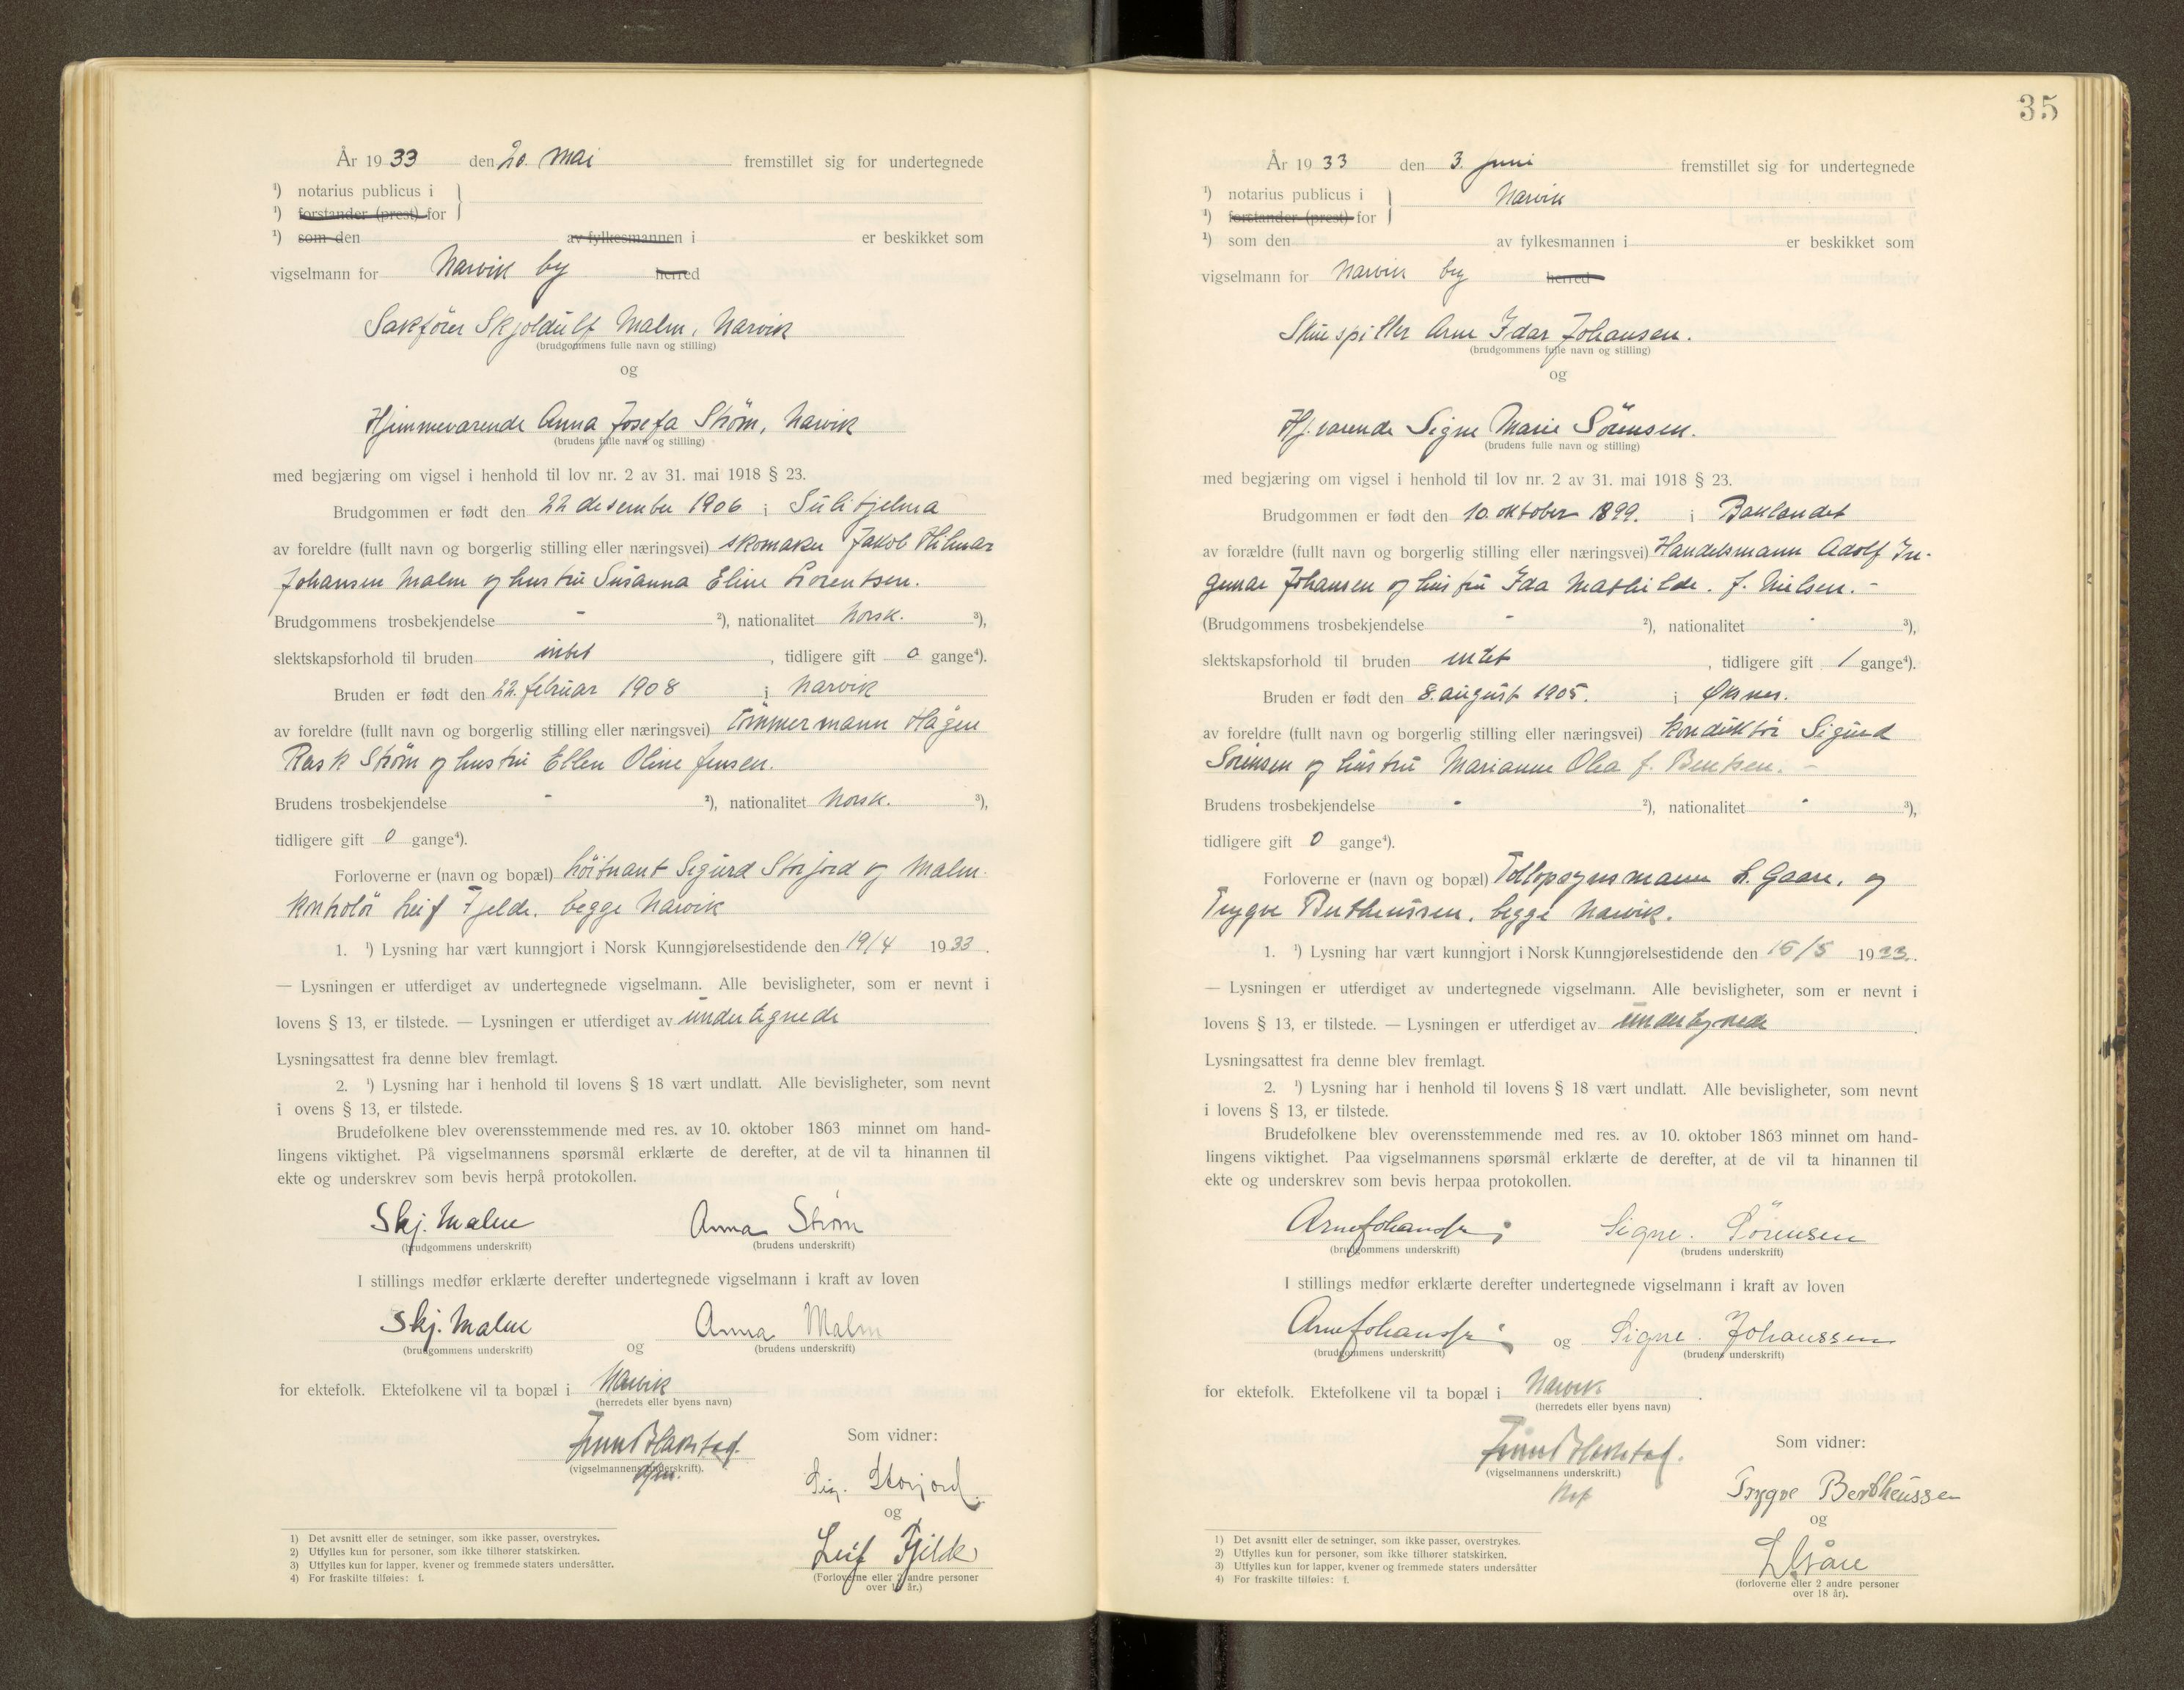 År 1933 den 20. mai fremstillet sig for undertegnede
¹) notarius publicus i
¹) forstander (prest) for
¹) som den av fylkesmannen i er beskikket som
vigselmann for Narvik by herred
Sakfører Skjoldulf Malm, Narvik
(brudgommens fulle navn og stilling)
og
Hjemmeværende Anna Josefa Strøm, Narvik
(brudens fulle navn og stilling)
med begjæring om vigsel i henhold til lov nr. 2 av 31. mai 1918 § 23.
Brudgommen er født den 22 desember 1906 i Sulitjelma
av foreldre (fullt navn og borgerlig stilling eller næringsvei) skomaker Jakob Hilmar
Johansen Malm og hustru Susanna Eline Lorentsen.
Brudgommens trosbekjendelse - ²), nationalitet Norsk. ³),
slektskapsforhold til bruden intet, tidligere gift 0 gange⁴).
Bruden er født den 22. februar 1908 i Narvik
av foreldre (fullt navn og borgerlig stilling eller næringsvei) Tømmermann Hagen
Rask Strøm og hustru Ellen Oline Jensen.
Brudens trosbekjendelse - ²), nationalitet Norsk. ³),
tidligere gift 0 gange⁴).
Forloverne er (navn og bopæl) Løitnant Sigurd Storjord og Malm-
kontrolør Leif Fjelde, begge Narvik
1. ¹) Lysning har vært kunngjort i Norsk Kunngjørelsestidende den 19/4 1933.
— Lysningen er utferdiget av undertegnede vigselmann. Alle bevisligheter, som er nevnt i
lovens § 13, er tilstede. — Lysningen er utferdiget av undertegnede
Lysningsattest fra denne blev fremlagt.
2. ¹) Lysning har i henhold til lovens § 18 vært undlatt. Alle bevisligheter, som nevnt
i ovens § 13, er tilstede.
Brudefolkene blev overensstemmende med res. av 10. oktober 1863 minnet om hand-
lingens viktighet. På vigselmannens spørsmål erklærte de derefter, at de vil ta hinannen til
ekte og underskrev som bevis herpå protokollen.
Skj. Malm Anna Strøm
(brudgommens underskrift) (brudens underskrift)
I stillings medfør erklærte derefter undertegnede vigselmann i kraft av loven
Skj. Malm og Anna Malm
(brudgommens underskrift) (brudens underskrift)
for ektefolk. Ektefolkene vil ta bopæl i Narvik
(herredets eller byens navn)
Finn Blakstad.
(vigselmannens underskrift).
Som vidner:
Sig. Storjord.
og
Leif Fjelde
(Forloverne eller 2 andre personer
over 18 år.)
1) Det avsnitt eller de setninger, som ikke passer, overstrykes.
2) Utfylles kun for personer, som ikke tilhører statskirken.
3) Utfylles kun for lapper, kvener og fremmede staters undersåtter.
4) For fraskilte tilføies: f.
35
År 1933 den 3. juni fremstillet sig for undertegnede
¹) notarius publicus i Narvik
¹) forstander (prest) for
¹) som den av fylkesmannen i er beskikket som
vigselmann for Narvik by herred
Skuespiller Arne Idar Johansen.
(brudgommens fulle navn og stilling)
og
Hj.værende Signe Marie Sörensen.
(brudens fulle navn og stilling)
med begjæring om vigsel i henhold til lov nr. 2 av 31. mai 1918 § 23.
Brudgommen er født den 10. oktober 1899. i Baklandet
av forældre (fullt navn og borgerlig stilling eller næringsvei) Handelsmann Adolf In-
gemar Johansen og hustru Ida Mathilde. f. Nielsen. -
(Brudgommens trosbekjendelse - ²), nationalitet - ³),
slektskapsforhold til bruden intet, tidligere gift 1 gange⁴).
Bruden er født den 8. august 1905. i Øksnes.
av foreldre (fullt navn og borgerlig stilling eller næringsvei) konduktør Sigurd
Sörensen og hustru Marianne Olea f. Bentsen. -
Brudens trosbekjendelse - ²), nationalitet - ³),
tidligere gift 0 gange⁴).
Forloverne er (navn og bopæl) Tollopsynsmann L. Gaare, og
Trygve Bertheussen, begge Narvik.
1. ¹) Lysning har vært kunngjort i Norsk Kunngjørelsestidende den 15/5 1933.
— Lysningen er utferdiget av undertegnede vigselmann. Alle bevisligheter, som er nevnt i
lovens § 13, er tilstede. — Lysningen er utferdiget av undertegnede.
Lysningsattest fra denne blev fremlagt.
2. ¹) Lysning har i henhold til lovens § 18 vært undlatt. Alle bevisligheter, som nevnt
i lovens § 13, er tilstede.
Brudefolkene blev overensstemmende med res. av 10. oktober 1863 minnet om hand-
lingens viktighet. Paa vigselmannens spørsmål erklærte de derefter, at de vil ta hinannen til
ekte og underskrev som bevis herpaa protokollen.
Arne Johansen Signe. Sörensen
(brudgommens underskrift) (brudens underskrift)
I stillings medfør erklærte derefter undertegnede vigselmann i kraft av loven
Arne Johansen og Signe. Johanssen
(brudgommens underskrift) (brudens underskrift)
for ektefolk. Ektefolkene vil ta bopæl i Narvik.
(herredets eller byens navn)
Finn Blakstad.
(vigselmannens underskrift.)
Som vidner:
Trygve Bertheussen
og
L Gåre
(forloverne eller 2 andre personer
over 18 år).
1) Det avsnitt eller de setninger, som ikke passer, overstrykes.
2) Utfylles kun for personer, som ikke tilhører statskirken.
3) Utfylles kun for lapper, kvener og fremmede staters undersåtter
4) For fraskilte tilføies: f.